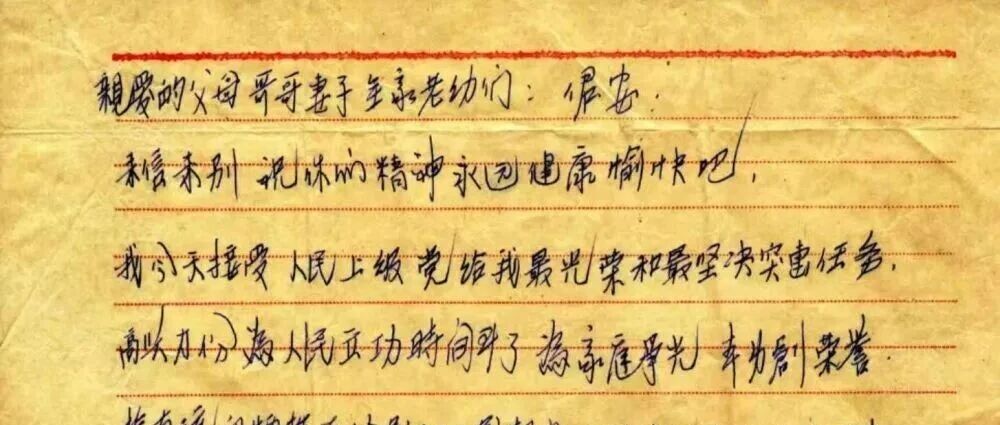 親爱的父母哥哥妻子全家老幼们：倨安．
来信来别 祝你的精神永远健康愉快吧！
我今天接受人民上级党给我最光荣和最坚决突出任务．
高兴万分 為人民立功時间到了 為家庭争光 本为創荣誉．